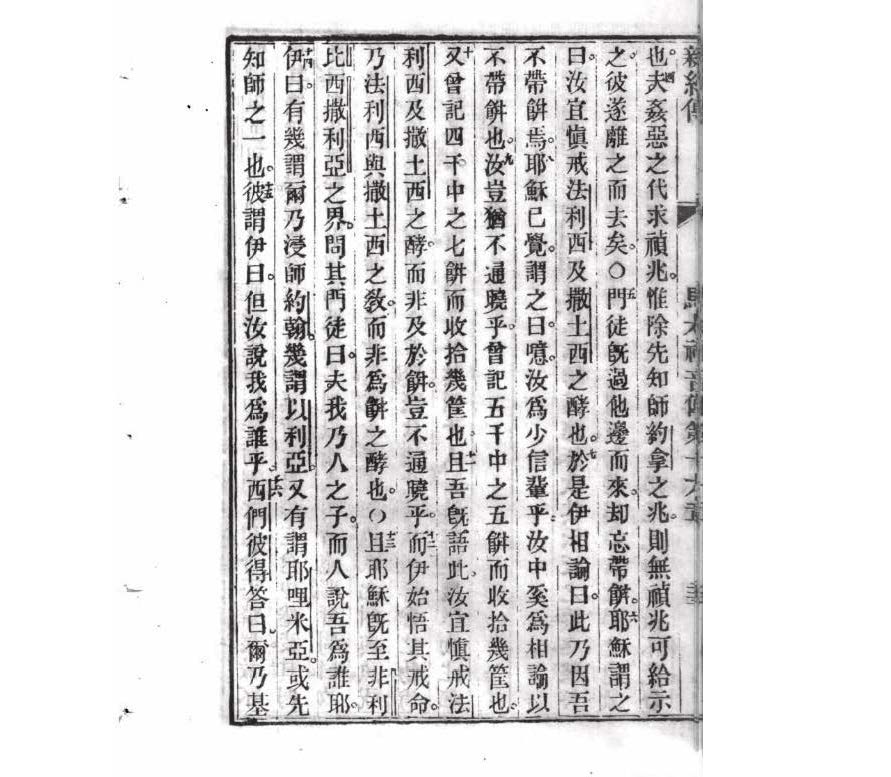 馬太福音傳第十六章
也。四夫姦惡之代求禎兆。惟除先知師約拿之兆。則無禎兆可給示
之。彼遂離之而去矣。〇五門徒既過他邊而來。却忘帶餅。六耶穌謂之
曰。汝宜慎戒法利西及撒土西之酵也。七於是伊相論曰。此乃因吾
不帶餅焉。八耶穌已覺。謂之曰。噫。汝為少信輩乎。汝中奚為相論以
不帶餅也。九汝豈猶不通曉乎。曾記五千中之五餅而收拾幾筐也。
十又曾記四千中之七餅而收拾幾筐也。十一且吾既語此。汝宜慎戒法
利西及撒土西之酵。而非及於餅。豈不通曉乎。十二而伊始悟其戒命。
乃法利西與撒土西之教。而非為餅之酵也。〇十三且耶穌既至非利
比西撒利亞之界。問其門徒曰。夫我乃人之子。而人說吾為誰耶。
十四伊曰。有幾謂爾乃浸師約翰。幾謂以利亞。又有謂耶哩米亞。或先
知師之一也。十五彼謂伊曰。但汝說我為誰乎。十六西們彼得答曰。爾乃基